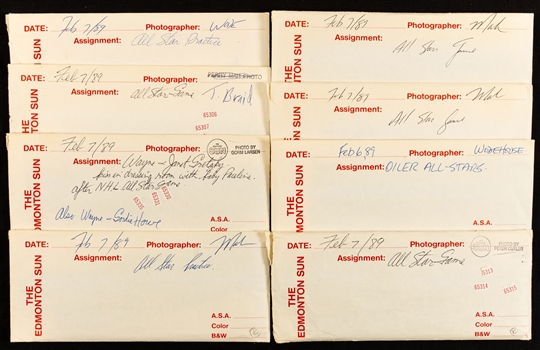 THE EDMONTON SUN
DATE: Feb 7/89 Photographer:
Assignment: All Star Practice
THE EDMONTON SUN
DATE: Feb 7/89 Photographer: T. Braid
Assignment: All Star Game
65306
65307
THE EDMONTON SUN
DATE: Feb 7/89 Photographer: PHOTO BY GORM LARSEN
Assignment: Wayne - Janet Gretzky
kiss in dressing room with Baby Paulina
after NHL All Star Game
Also Wayne - Gordie Howe
A.S.A.
Color
THE EDMONTON SUN
DATE: Feb 7/89 Photographer:
Assignment: All Star Practice
A.S.A.
Color
B&W
THE EDMONTON SUN
Feb 7/89
All Star Game
THE EDMONTON SUN
DATE: Feb 7/89 Photographer:
Assignment: All Star Game
THE EDMONTON SUN
DATE: Feb 6/89 Photographer:
Assignment: OILER ALL-STARS
A.S.A.
Color
THE EDMONTON SUN
DATE: Feb 7/89 Photographer: PHOTO BY
Assignment: All Star Game
65314 65315
A.S.A.
Color
B&W